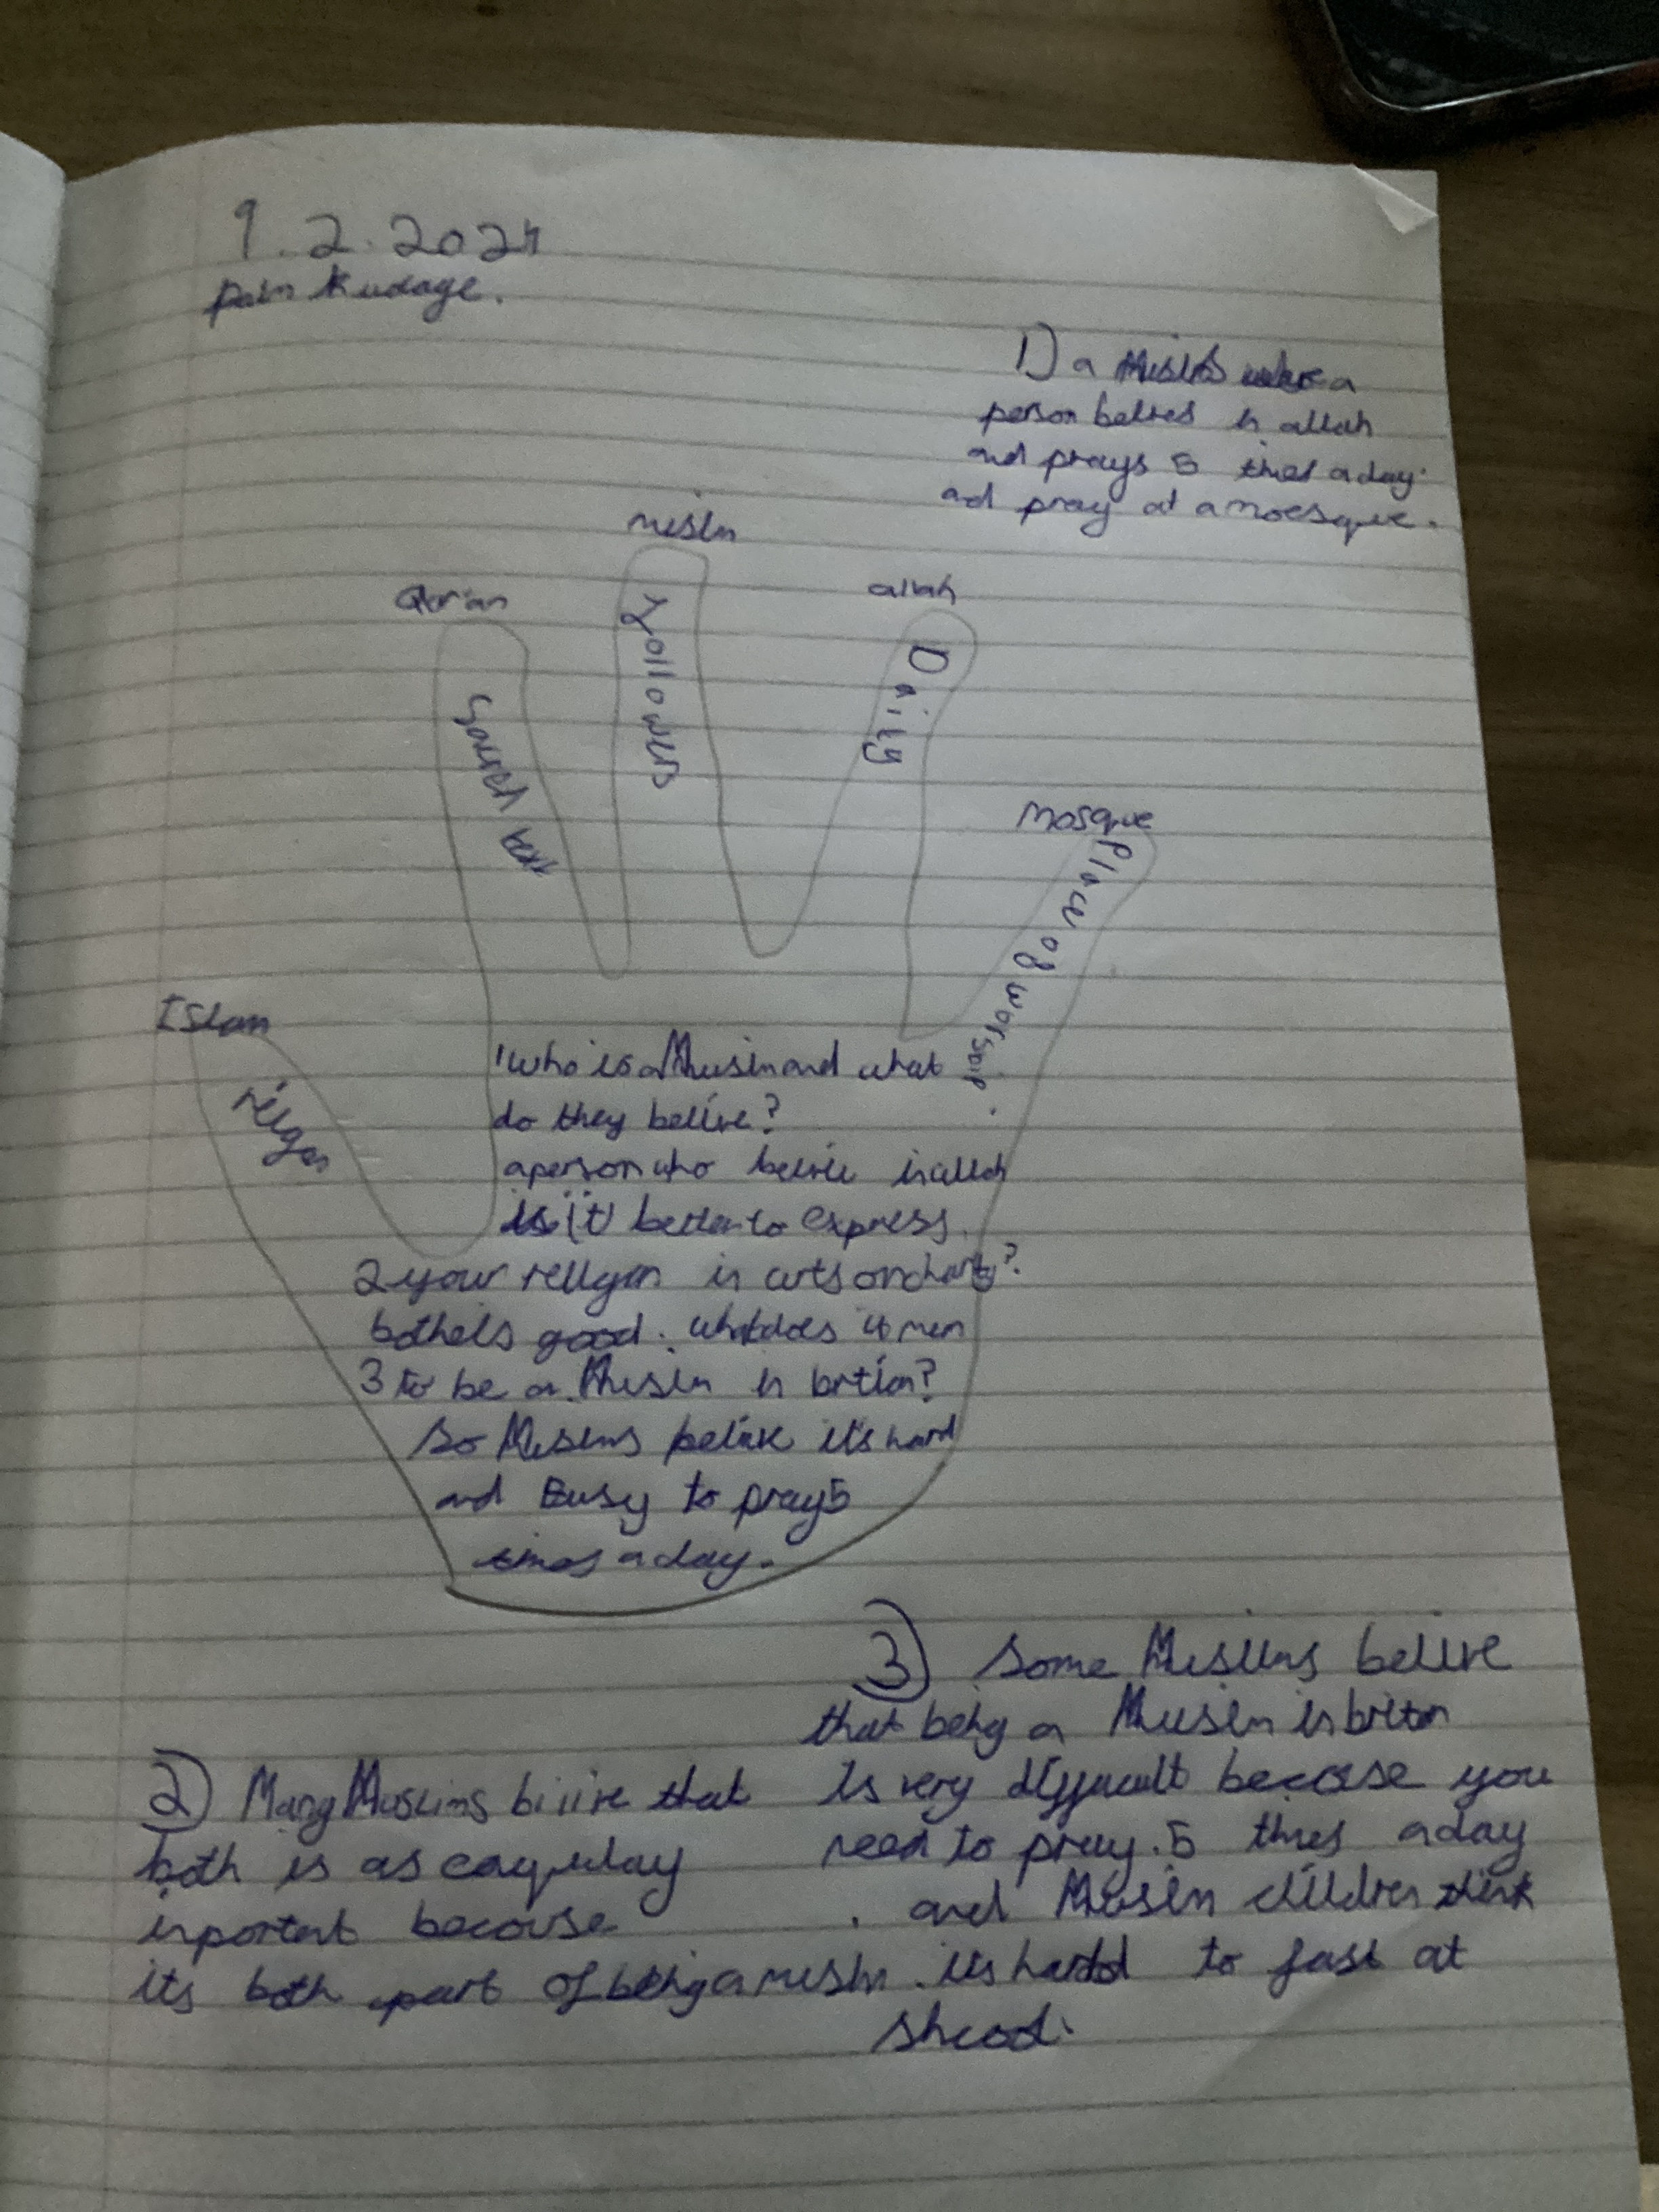 9.2.2024
palm kudage.
1) a Muslim where a
person belives in allah
and prays 5 times a day
and pray at a moesque.
Qor'an
Sacred text
muslm
followers
allah
Daily
Mosque
Place of worsoip.
Islam
religon
1 who is a Muslm and what
do they belive?
a person who belive in allah
is it better to express
2 your religon in arts or charity?
both els good. what does it men
3 to be a Muslm in brtian?
so Muslms belive it's hard
and Easy to pray 5
times a day.
2) Many Muslims bilive that
both is as eaqulay
inportant becouse
its both part of being a muslm.
3) Some Muslims belive
that being a Muslm in briton
Is very difficult becasse you
need to pray. 5 times a day
and Muslm children think
its hard to fast at
shcool.